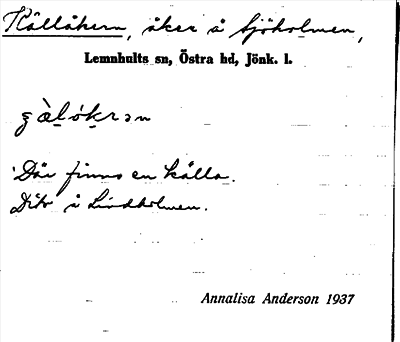 Källåkern, åker å Sjöholmen,
Lemnhults sn, Östra hd, Jönk. l.
Där finns en källa.
Dito å Lindholmen.
Annalisa Anderson 1937